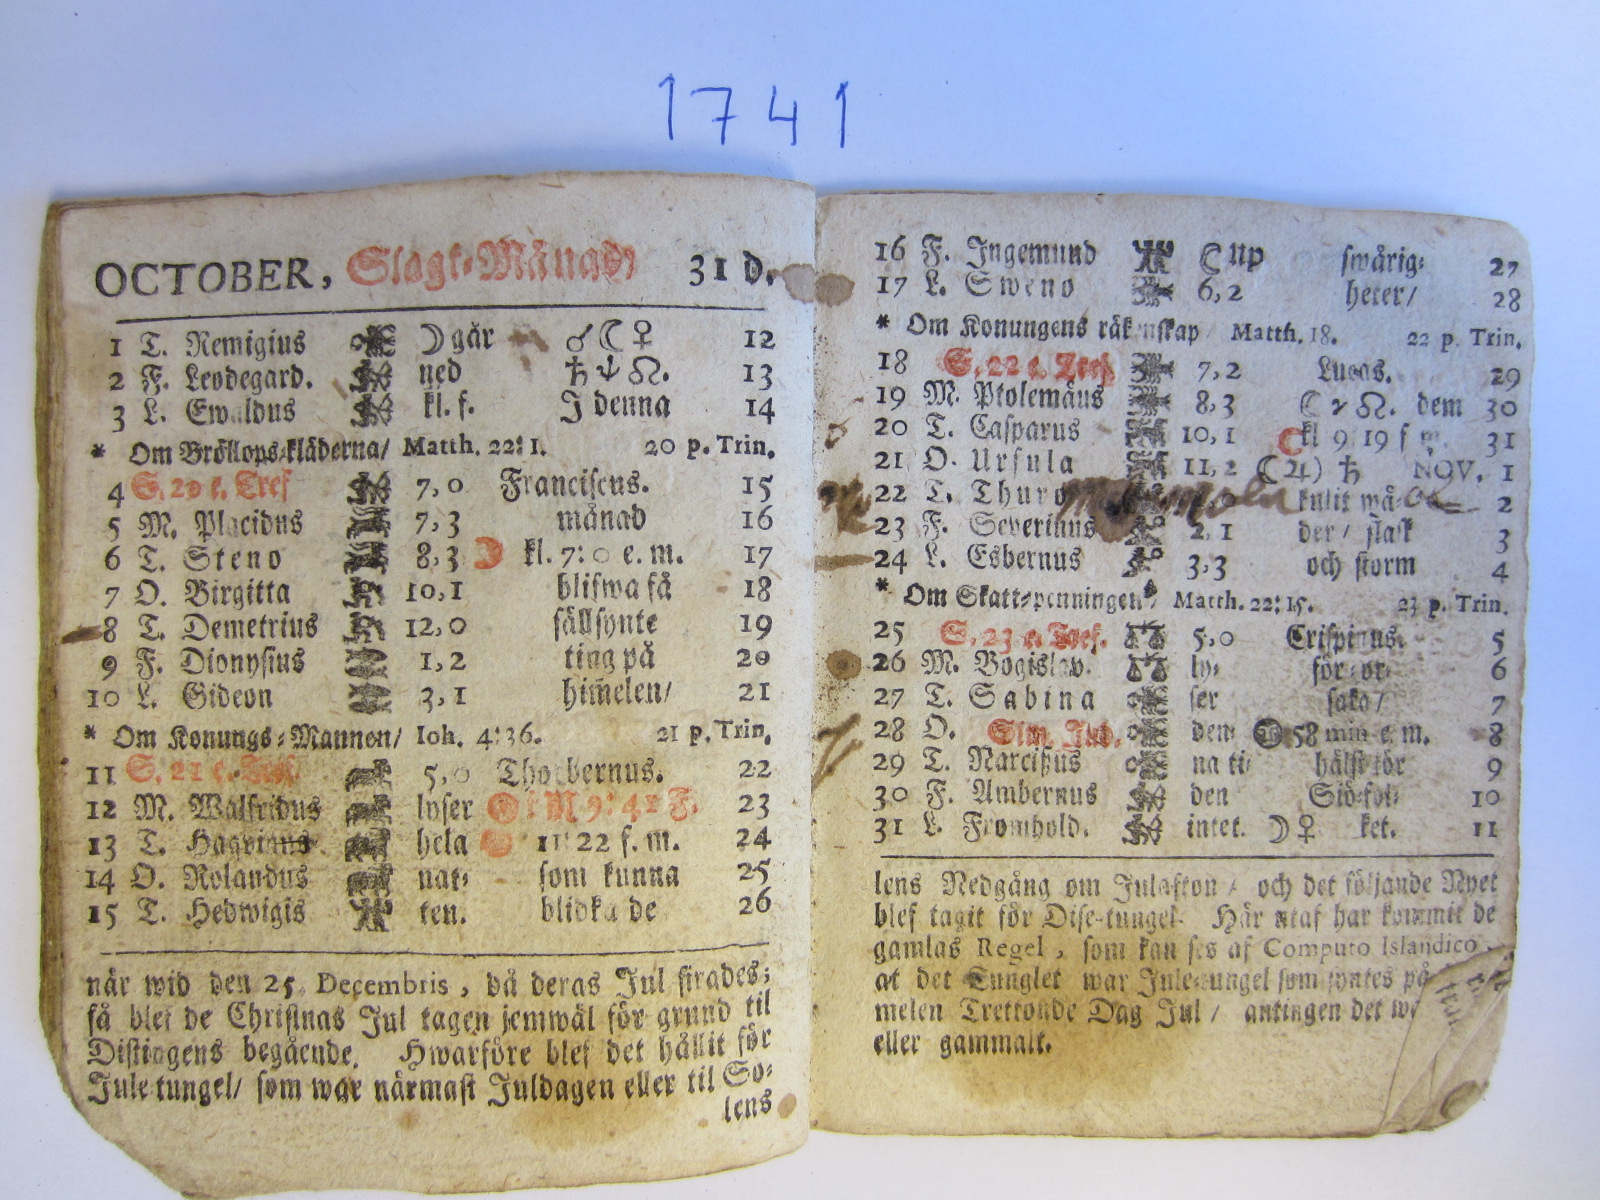 1741
OCTOBER, Slagt-Månad, 31 d.
1 T. Remigius ☽ går ☌ ☾ ♀ 12
2 F. Leodegard. ned ♄ ♆ ☊. 13
3 L. Ewaldus kl. f. I denna 14
* Om Bröllops-kläderna/ Matth. 22: 1. 20 p. Trin.
4 S. 20 e. Tref 7,0 Franciscus. 15
5 M. Placidus 7,3 månad 16
6 T. Steno 8,3 ☽ kl. 7: 0 e. m. 17
7 O. Birgitta 10,1 blifwa få 18
8 T. Demetrius 12,0 sällsynte 19
9 F. Dionysius 1,2 ting på 20
10 L. Gideon 3,1 him̃elen/ 21
* Om Konungs-Mannen/ Ioh. 4: 36. 21 p. Trin.
11 S. 21 e. Tref. 5,0 Thorbernus. 22
12 M. Walfridus lyser i 9: 41 F. 23
13 T. hela 11: 22 f. m. 24
14 O. Rolandus nat- som kunna 25
15 T. Hedwigis ten. blidka de 26
när wid den 25. Decembris, då deras Jul firades;
så blef de Christnas Jul tagen jemwäl för grund til
Distingens begående. Hwarföre blef det hållit för
Jule-tungel/ som war närmast Juldagen eller til So-
lens
16 F. Ingemund ☾ up swårig- 27
17 L. Sweno 6,2 heter/ 28
* Om Konungens räkenskap/ Matth. 18. 22 p. Trin.
18 S. 22 e. Tref. 7,2 Lucas. 29
19 M. Ptolemäus 8,3 ☾ ☊. dem 30
20 T. Casparus 10,1 ☾ kl 9: 19 f m. 31
21 O. Ursula 11,2 ☾ ♃ ♄ NOV. 1
22 T. Thuro kulit wä- 2
23 F. Severinus 2,1 der/ slask 3
24 L. Esbernus 3,3 och storm 4
* Om Skatt-penningen/ Matth. 22: 15. 23 p. Trin.
25 S. 23 e. Tref. 5,0 Crispinus. 5
26 M. Bogislaw. ly- för-or- 6
27 T. Sabina ser saka/ 7
28 O. Sim. Jud. den 58 min e. m. 8
29 T. Narcißus na ti- hälst för 9
30 F. Ambernus den Siö-fol- 10
31 L. Fromhold. intet. ☽ ♀ ket. 11
lens Nedgång om Julafton/ och det följande Nyet
blef tagit för Dise-tungel. Här utaf har kommit de
gamlas Regel, som kan ses af Computo Islandico,
at det Tunglet war Jule-tungel som syntes på
melen Trettonde Dag Jul/ antingen det
eller gammalt.